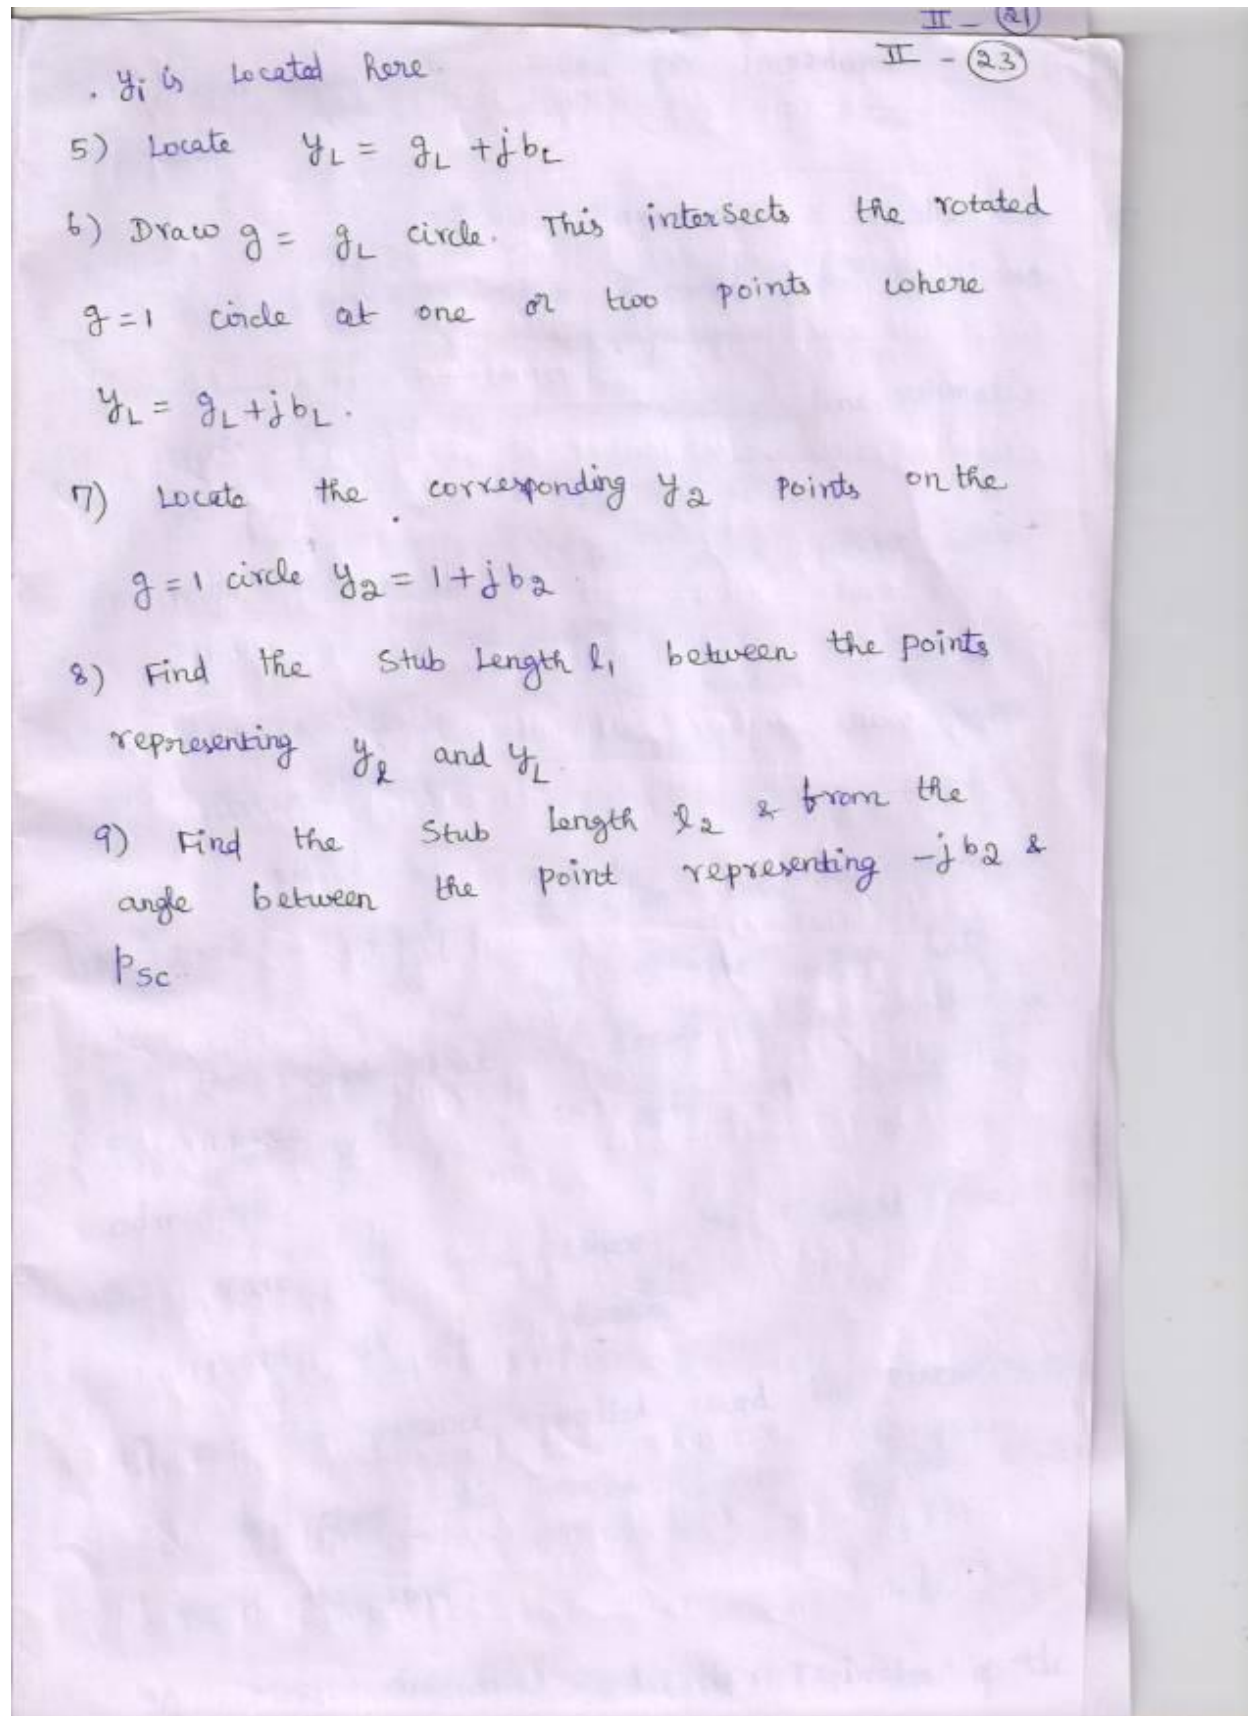 II - 21
II - 23
. yi is Located here.
5) Locate yL = gL + jbL
6) Draw g = gL circle. This intersects the rotated
g = 1 circle at one or two points where
yL = gL + jbL.
7) Locate the corresponding y2 points on the
g = 1 circle y2 = 1 + jb2
8) Find the Stub Length l1 between the points
representing yl and yL.
9) Find the Stub length l2 & from the
angle between the point representing -jb2 &
Psc.